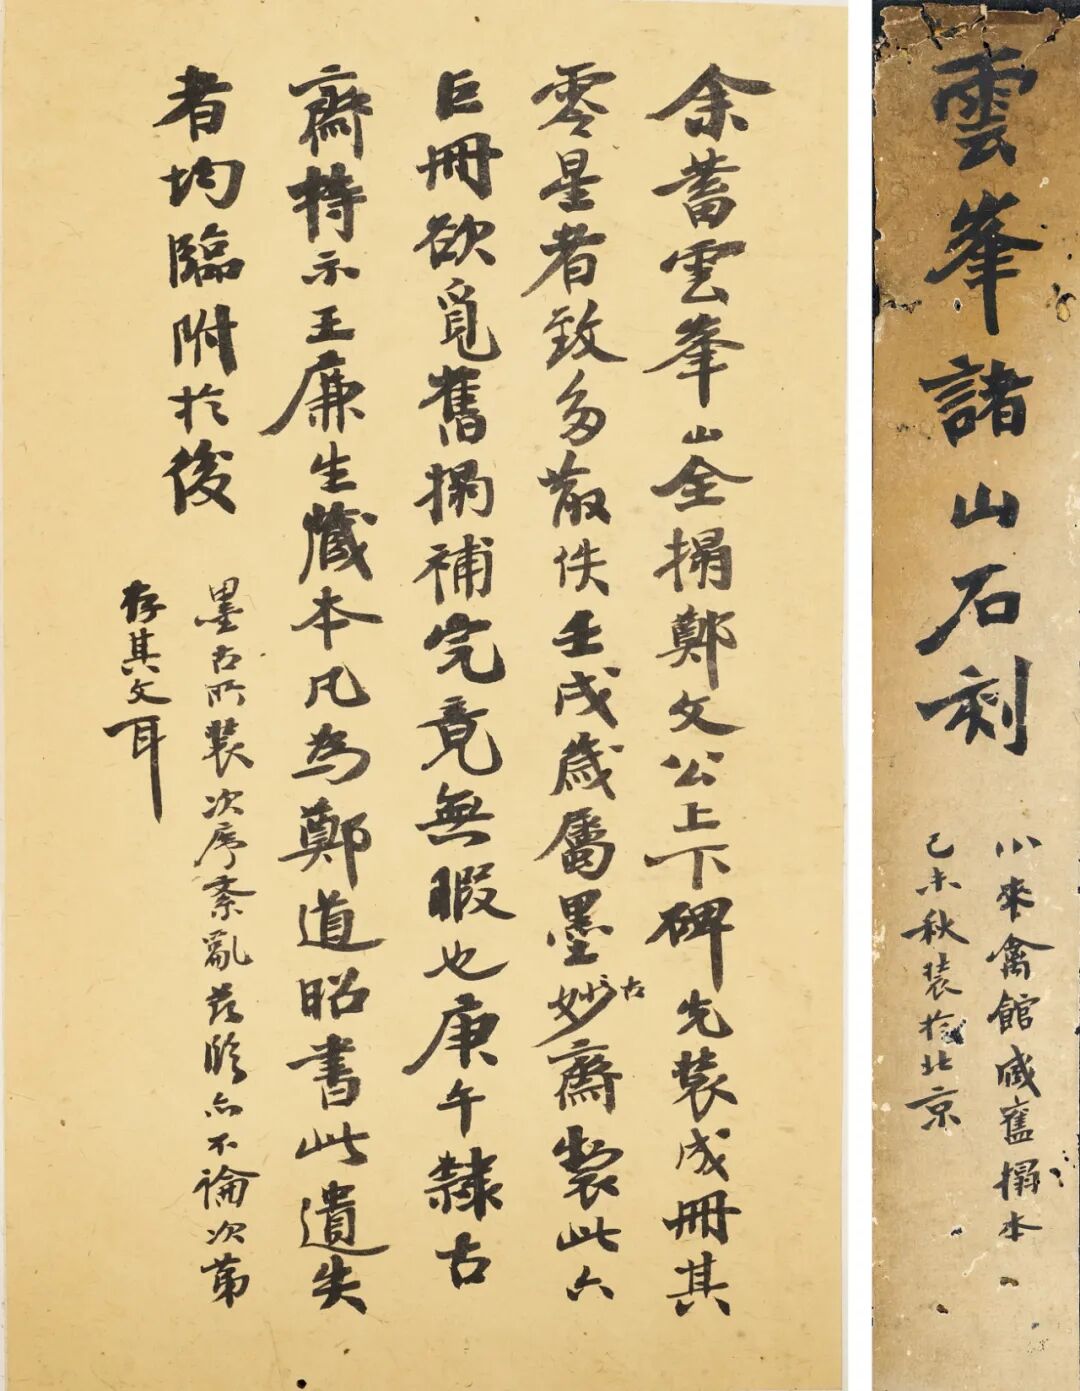 余蓄雲峯山全搨鄭文公上下碑先裝成冊其
零星者致多散佚壬戌歲屬墨妙古齋製此六
巨冊欲覓舊搨補完竟無暇也庚午隸古
齋持示王廉生藏本凡為鄭道昭書此遺失
者均臨附於後
墨古所裝次序紊亂茲臨亦不論次第
存其文耳
雲峯諸山石刻
小來禽館咸舊搨本
己未秋裝於北京